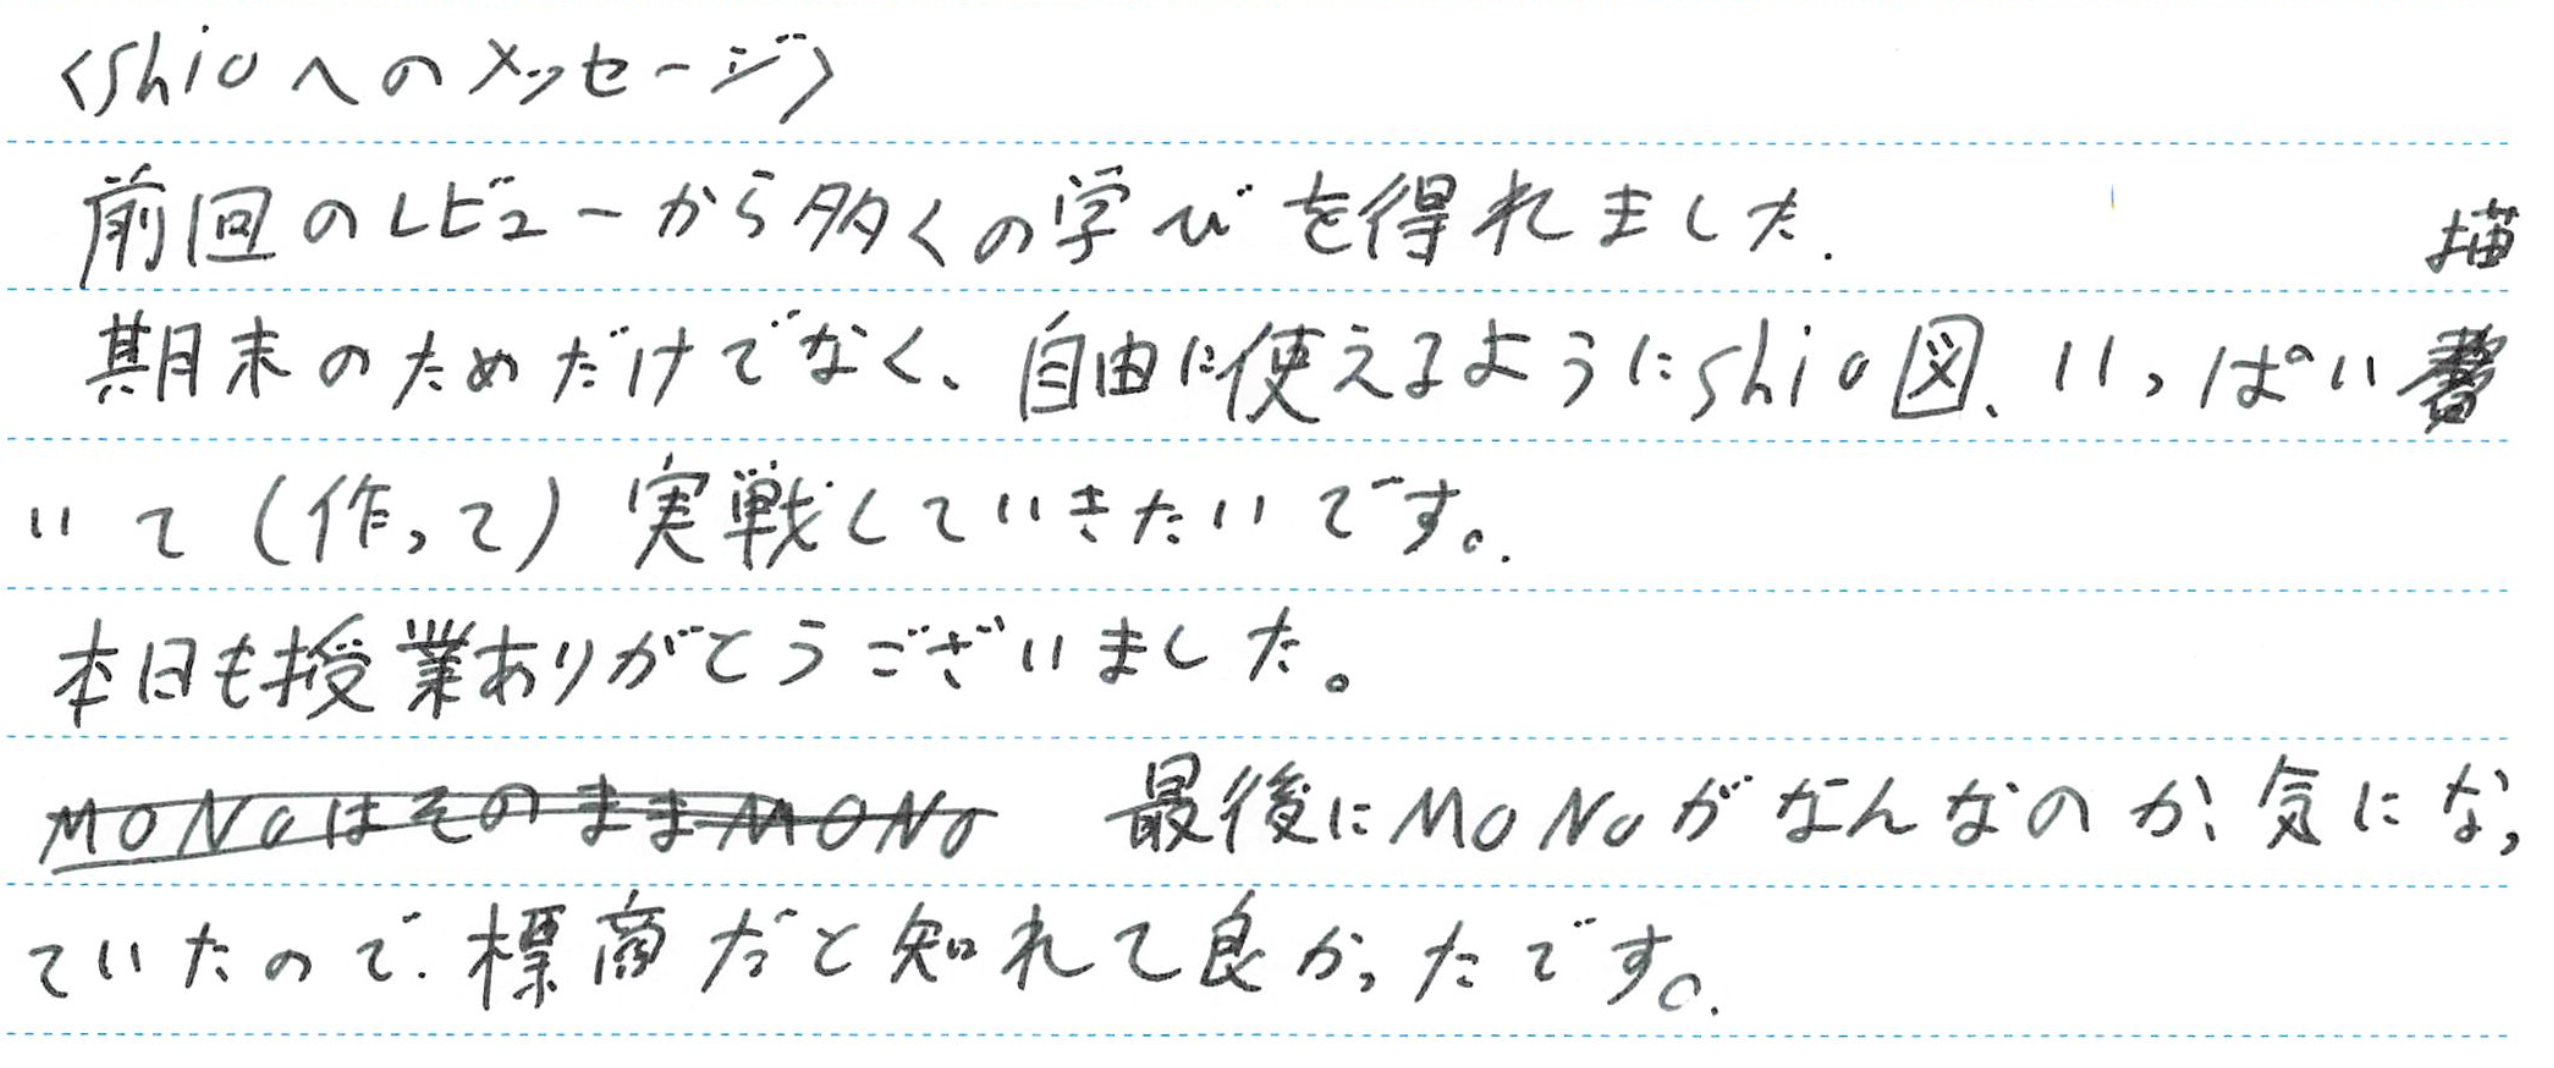 <shioへのメッセージ>
前回のレビューから多くの学びを得れました.
期末のためだけでなく、自由に使えるようにshio図、いっぱい描
いて(作って)実戦していきたいです。.
本日も授業ありがとうございました。
MONOはそのままMONO 最後にMONOがなんなのか、気になっ
ていたので.標商だと知れて良かったです。.